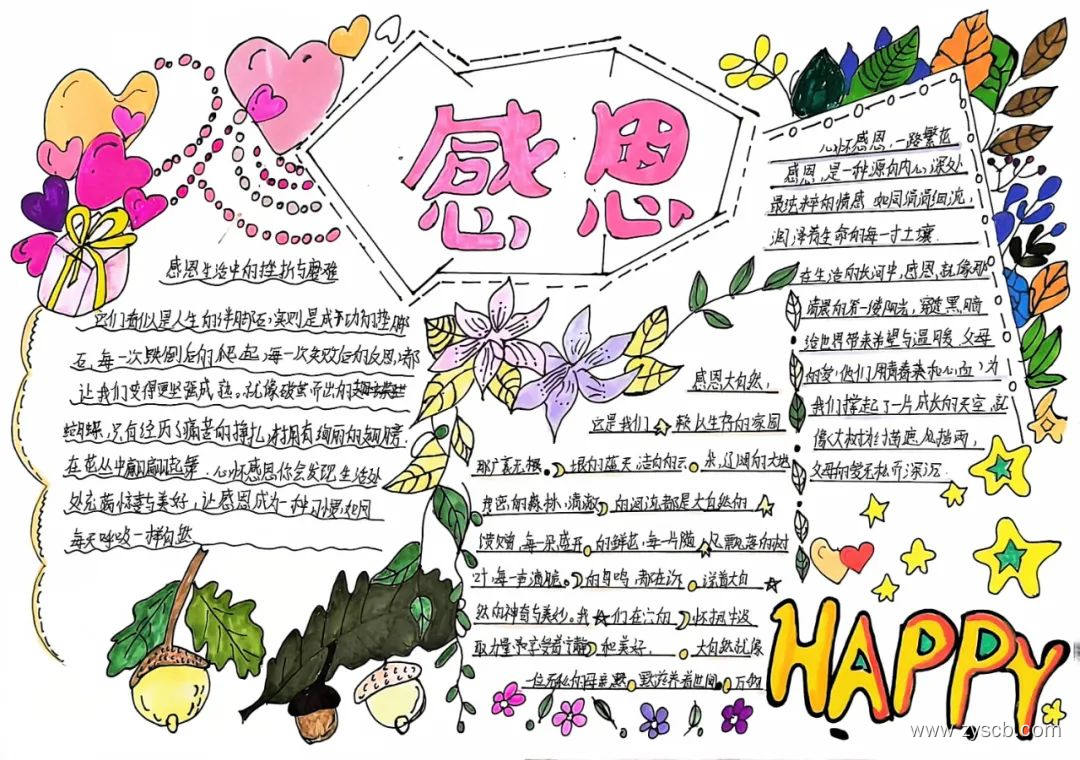 感恩
感恩生活中的挫折与磨难
它们看似是人生的绊脚石，实则是成功的垫脚
石，每一次跌倒后的爬起，每一次失败后的反思，都
让我们变得更坚强成熟。就像破茧而出的
蝴蝶，只有经历了痛苦的挣扎，才拥有绚丽的翅膀，
在花丛中翩翩起舞。心怀感恩你会发现，生活处
处充满惊喜与美好，让感恩成为一种习惯，如同
每天呼吸一样自然
感恩大自然，
这是我们 赖以生存的家园
那广袤无垠 的蓝天，洁白的云 ，辽阔的大地
茂密的森林，清澈 的河流都是大自然的
馈赠，每一朵盛开 的鲜花，每一片随 风飘落的树
叶，每一声清脆 的鸟鸣，都在诉 说着大自
然的神奇与美妙。我 们在它的 怀抱中汲
取力量，享受着宁静 和美好， 大自然就像
一位无私的母亲，默 默滋养着世间 万物
心怀感恩，一路繁花
感恩，是一种源自内心深处
最纯粹的情感，如同涓涓细流，
润泽着生命的每一寸土壤
在生活的长河中，感恩，就像那
清晨的第一缕阳光，穿透黑暗
给世界带来希望与温暖，父母
的爱，他们用青春和心血，为
我们撑起了一片成长的天空，就
像大树为小苗遮风挡雨，
父母的爱无私而深沉
HAPPY
www.zyscb.com